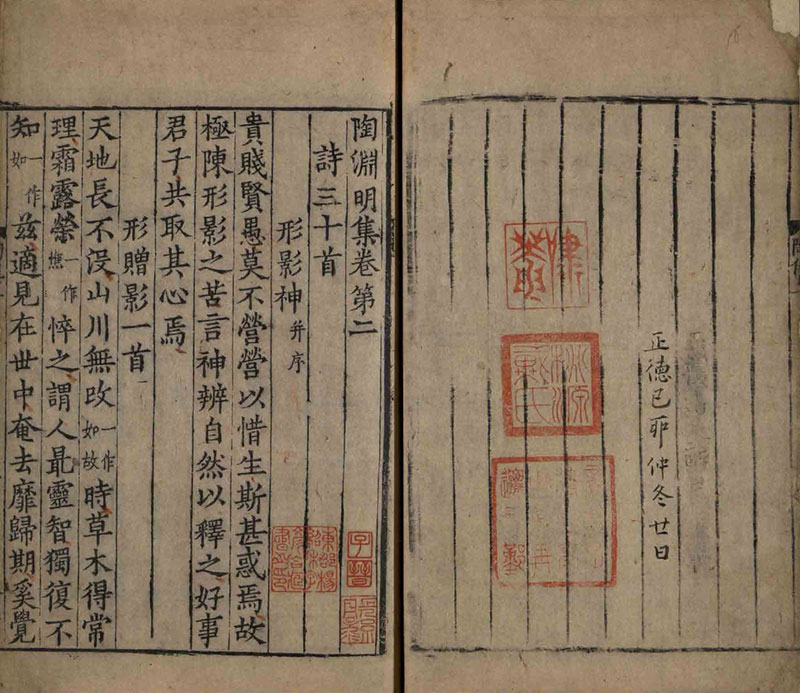 正德己卯仲冬廿日
陶淵明集卷第二
詩三十首
形影神并序
貴賤賢愚莫不營營以惜生斯甚惑焉故
極陳形影之苦言神辨自然以釋之好事
君子共取其心焉
形贈影一首
天地長不沒山川無改一作如故時草木得常
理霜露榮一作憔悴之謂人最靈智獨復不
知一作如茲適見在世中奄去靡歸期奚覺
子晉